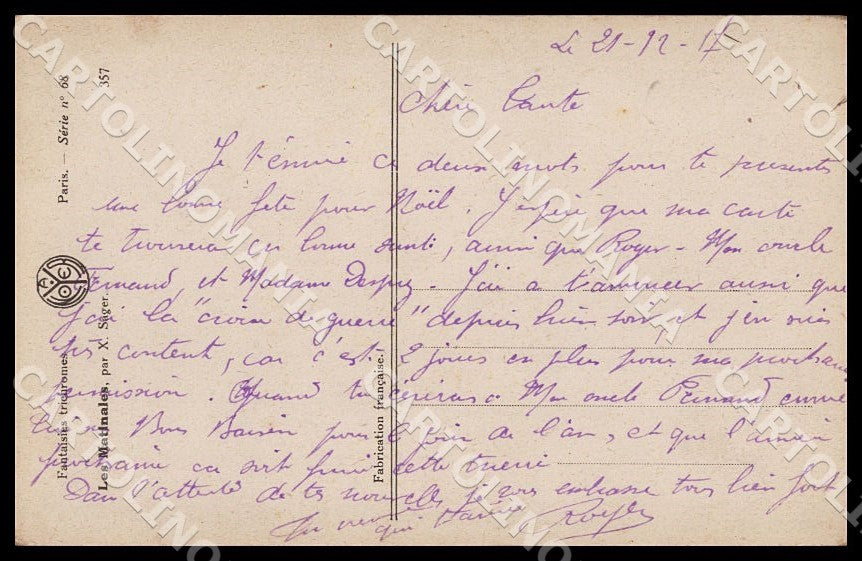 Le 21-12-17
Chère Tante
Je t'envoie ce deux mots pour te presenter
une bonne fete pour Noël. J'espère que ma carte
te trouvera en bonne santé, ainsi que Roger - Mon oncle
Fernand, et Madame
J'ai a t'annoncer aussi que
j'ai la "croix de guerre" depuis hier soir, et j'en suis
très content, car c'est 2 jours en plus pour ma prochaine
permission. Quand tu écriras a Mon oncle Fernand envoie
lui Bons Baisers pour le jour de l'an, et que l'année
prochaine ca soit fini cette guerre
Dans l'attente de tes nouvelles je vous embrasse tous bien fort
Ton neveu qui t'aime Roger
Paris. — Série n° 68
357
Fantaisies trichromes.
Les Matinales, par X. Sager.
Fabrication française.
CARTOLINOMANIA